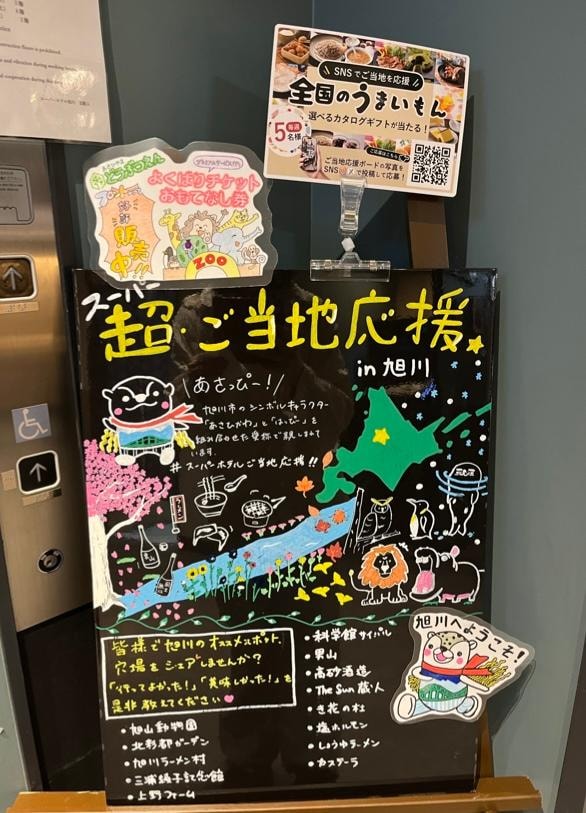 SNSでご当地を応援
全国のうまいもん
選べるカタログギフトが当たる!
毎週
5名様
ご応募はこちら
ご当地応援ボードの写真を
SNSで投稿して応募!
よくばりチケット
おもてなし券
好評
販売
中!!
ZOO
スーパー
超・ご当地応援
in 旭川
\あさっぴー!/
旭川市のシンボルキャラクター
「あさひかわ」と「はっぴー」を
組み合わせた愛称で親しまれて
います。
#スーパーホテルご当地応援!!
皆様で旭川のオススメスポット、
穴場をシェアしませんか?
「行ってよかった!」「美味しかった!」を
是非教えてください
・旭山動物園
・北彩都ガーデン
・旭川ラーメン村
・三浦綾子記念館
・上野ファーム
・科学館サイパル
・男山
・高砂酒造
・The Sun 蔵人
・き花の杜
・塩ホルモン
・しょうゆラーメン
・カステーラ
旭川へようこそ!